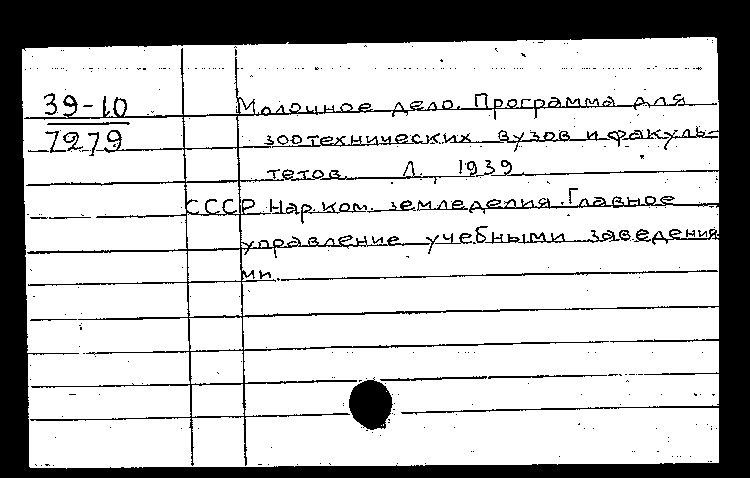 39-10
7279
Молочное дело. Программа для
зоотехнических вузов и факуль-
тетов. Л., 1939.
СССР. Нар. ком. земледелия. Главное
управление учебными заведения
ми.